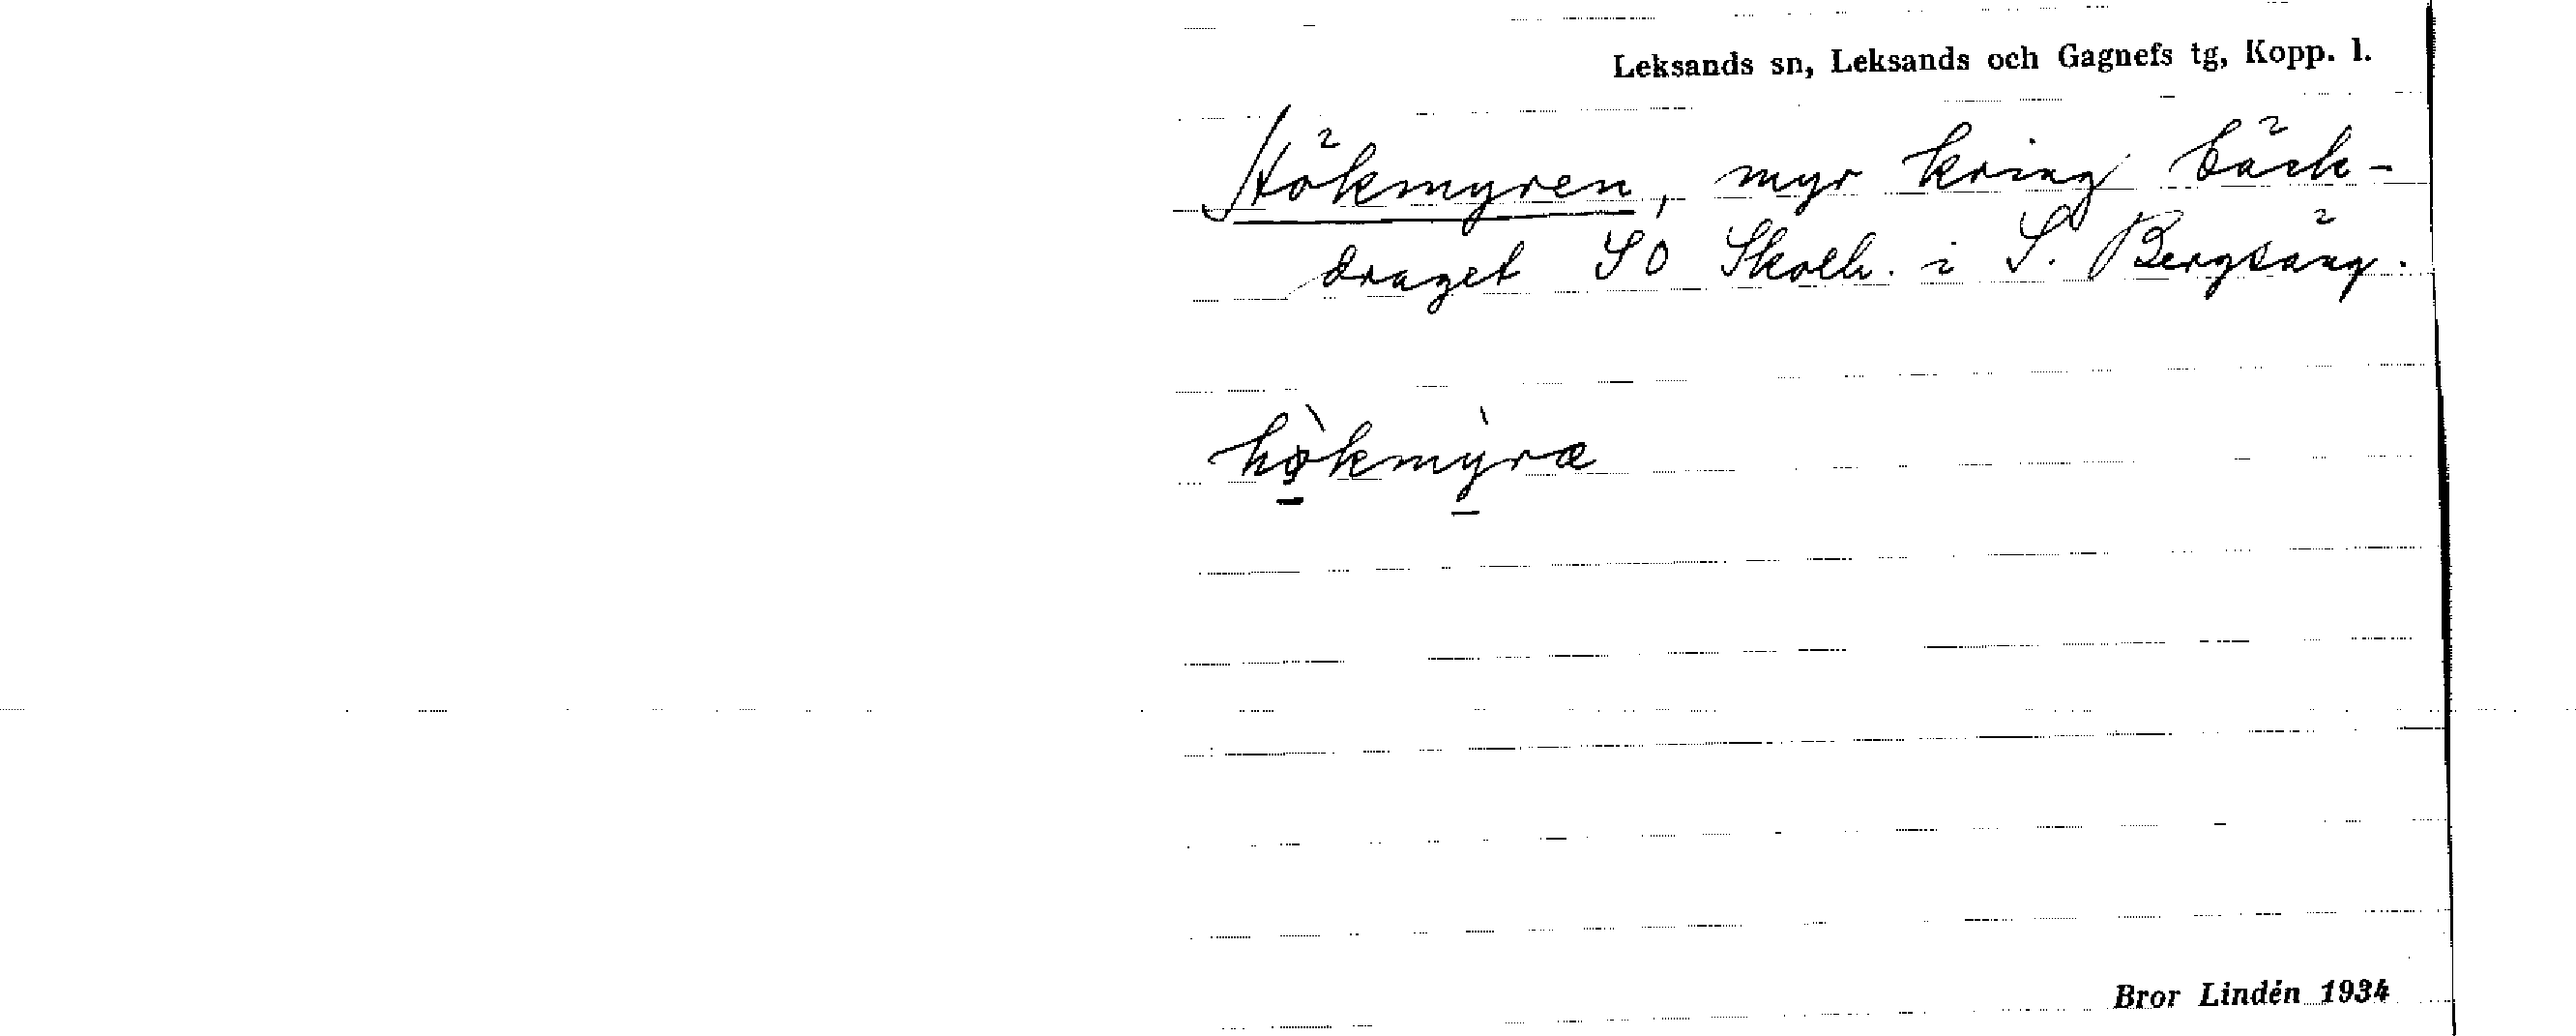 Leksands sn, Leksands och Gagnefs tg, Kopp. l.
Hökmyren, myr kring bäck-
draget SO Skolh. i S. Bergsäng.
hø̀kmỳra
Bror Lindén 1934